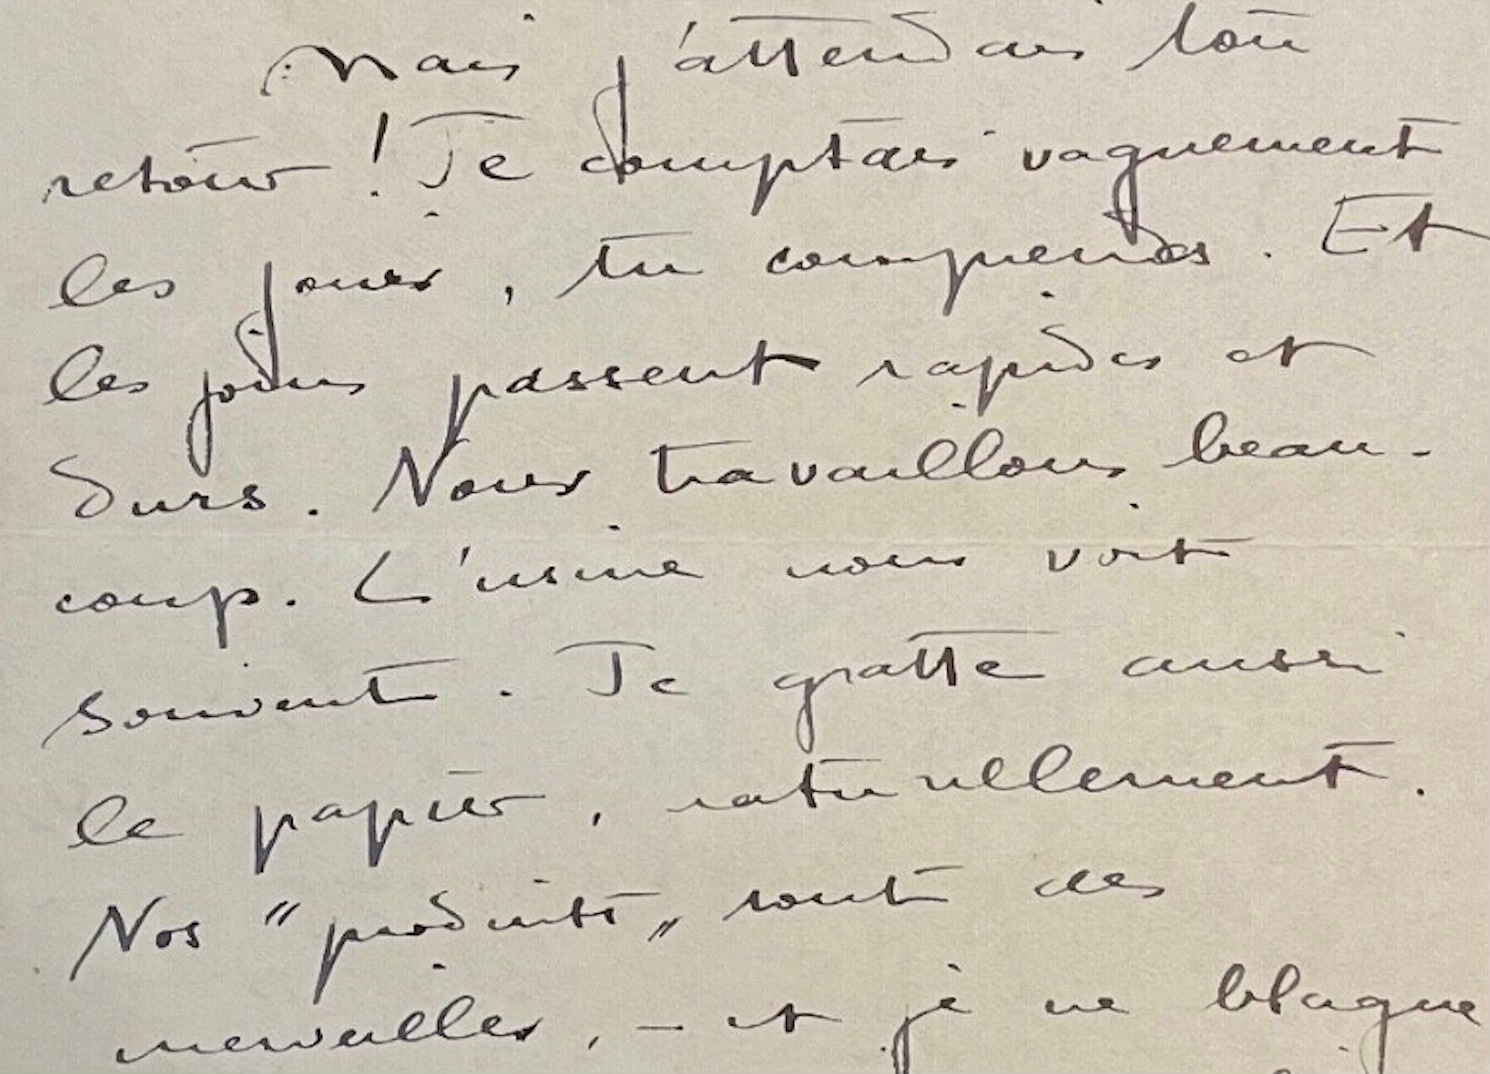 Mais j'attendais ton
retour ! Je comptais vaguement
les jours, tu comprends. Et
les jours passent rapides et
durs. Nous travaillons beau-
coup. L'usine nous voit
souvent. Je gratte aussi
le papier, naturellement.
Nos "produits" sont des
merveilles, - et je ne blague